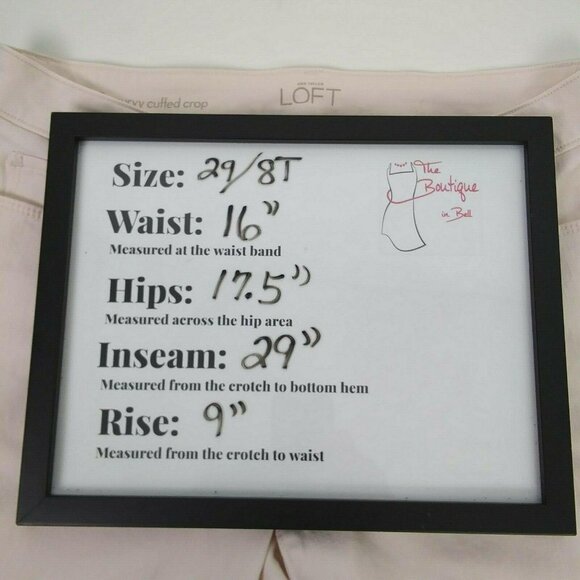 ANN TAYLOR
LOFT
cuffed crop
Size: 29/8T
The
Boutique
in Bell
Waist: 16"
Measured at the waist band
Hips: 17.5"
Measured across the hip area
Inseam: 29"
Measured from the crotch to bottom hem
Rise: 9"
Measured from the crotch to waist